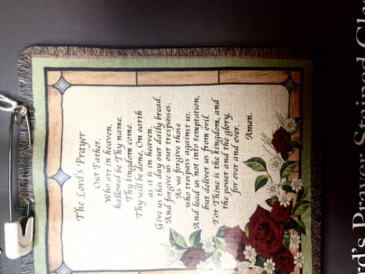 The Lord's Prayer
Our Father,
Who art in heaven,
hallowed be Thy name.
Thy kingdom come.
Thy will be done, On earth
as it is in heaven.
Give us this day our daily bread.
And forgive us our trespasses,
As we forgive those
who trespass against us.
And lead us not into temptation,
but deliver us from evil.
For Thine is the kingdom, and
the power and the glory,
for ever and ever.
Amen.
Lord's Prayer Stained